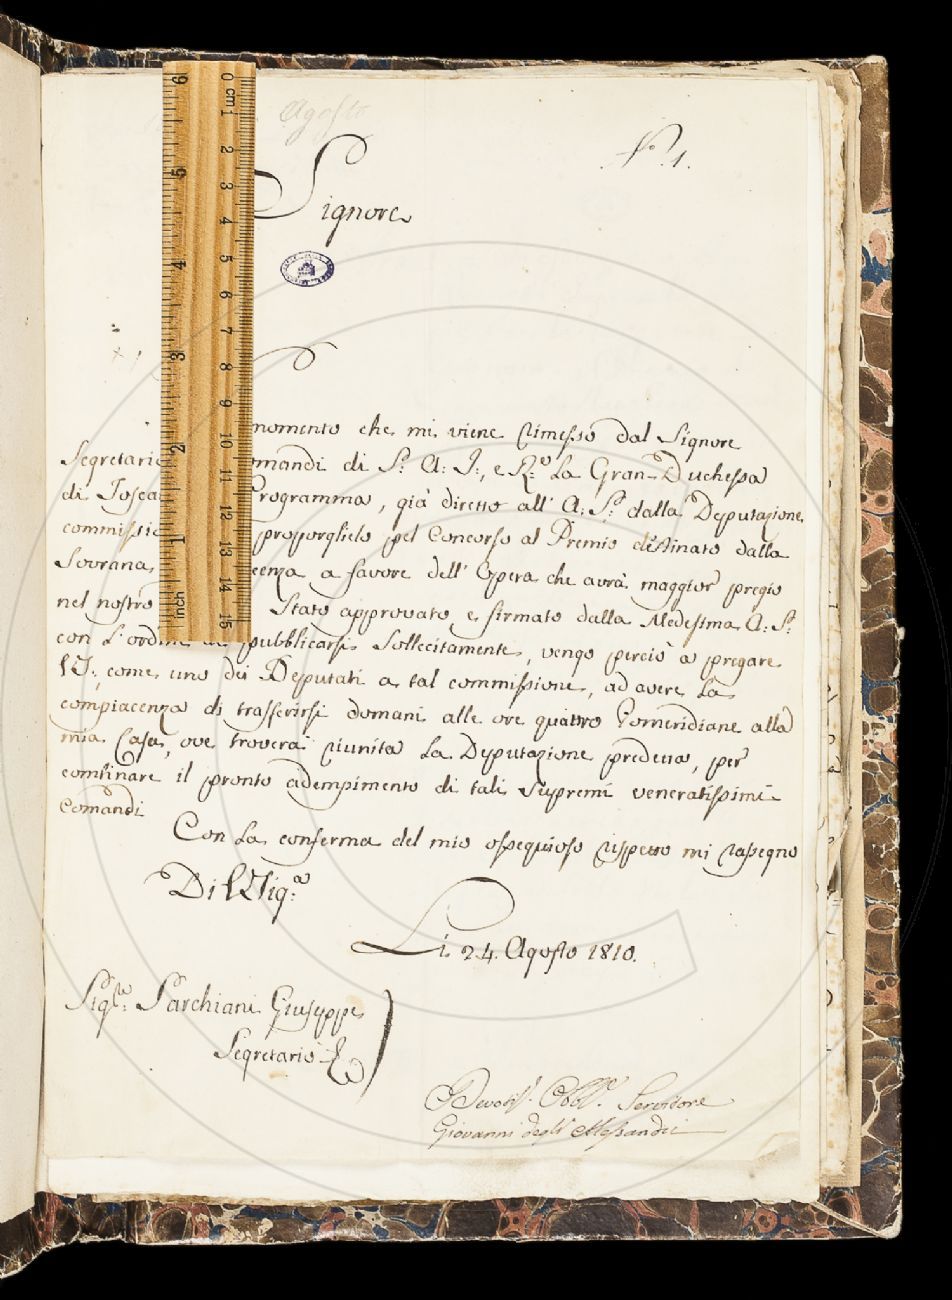 Agosto
N.º 1.
Signore
momento che mi viene rimesso dal Signore
Segretario omandi di S: A: I:, e R.le La Gran-Duchessa
di Tosca Programma, già diretto all' A: S: dalla Deputazione
commissio proporglielo pel Concorso al Premio destinato dalla
Sovrana, cenza a favore dell' Opera che avrà maggior pregio
nel nostro Stato approvato, e firmato dalla Medesima A: S:
con L'ordine di pubblicarsi Sollecitamente, vengo perciò a pregare
VS:, come uno dei Deputati a tal commissione, ad avere La
compiacenza di trasferirsi domani alle ore quattro Pomeridiane alla
mia Casa, ove troverà riunita La Deputazione predetta, per
combinare il pronto adempimento di tali Supremi veneratissimi
Comandi
Con La conferma del mio ossequioso rispetto mi rassegno
Di VSig:a
Li 24. Agosto 1810.
Sig.re Sarchiani Giuseppe
Segretario
Devotis.o Obbl.o Servitore
Giovanni degli Alessandri